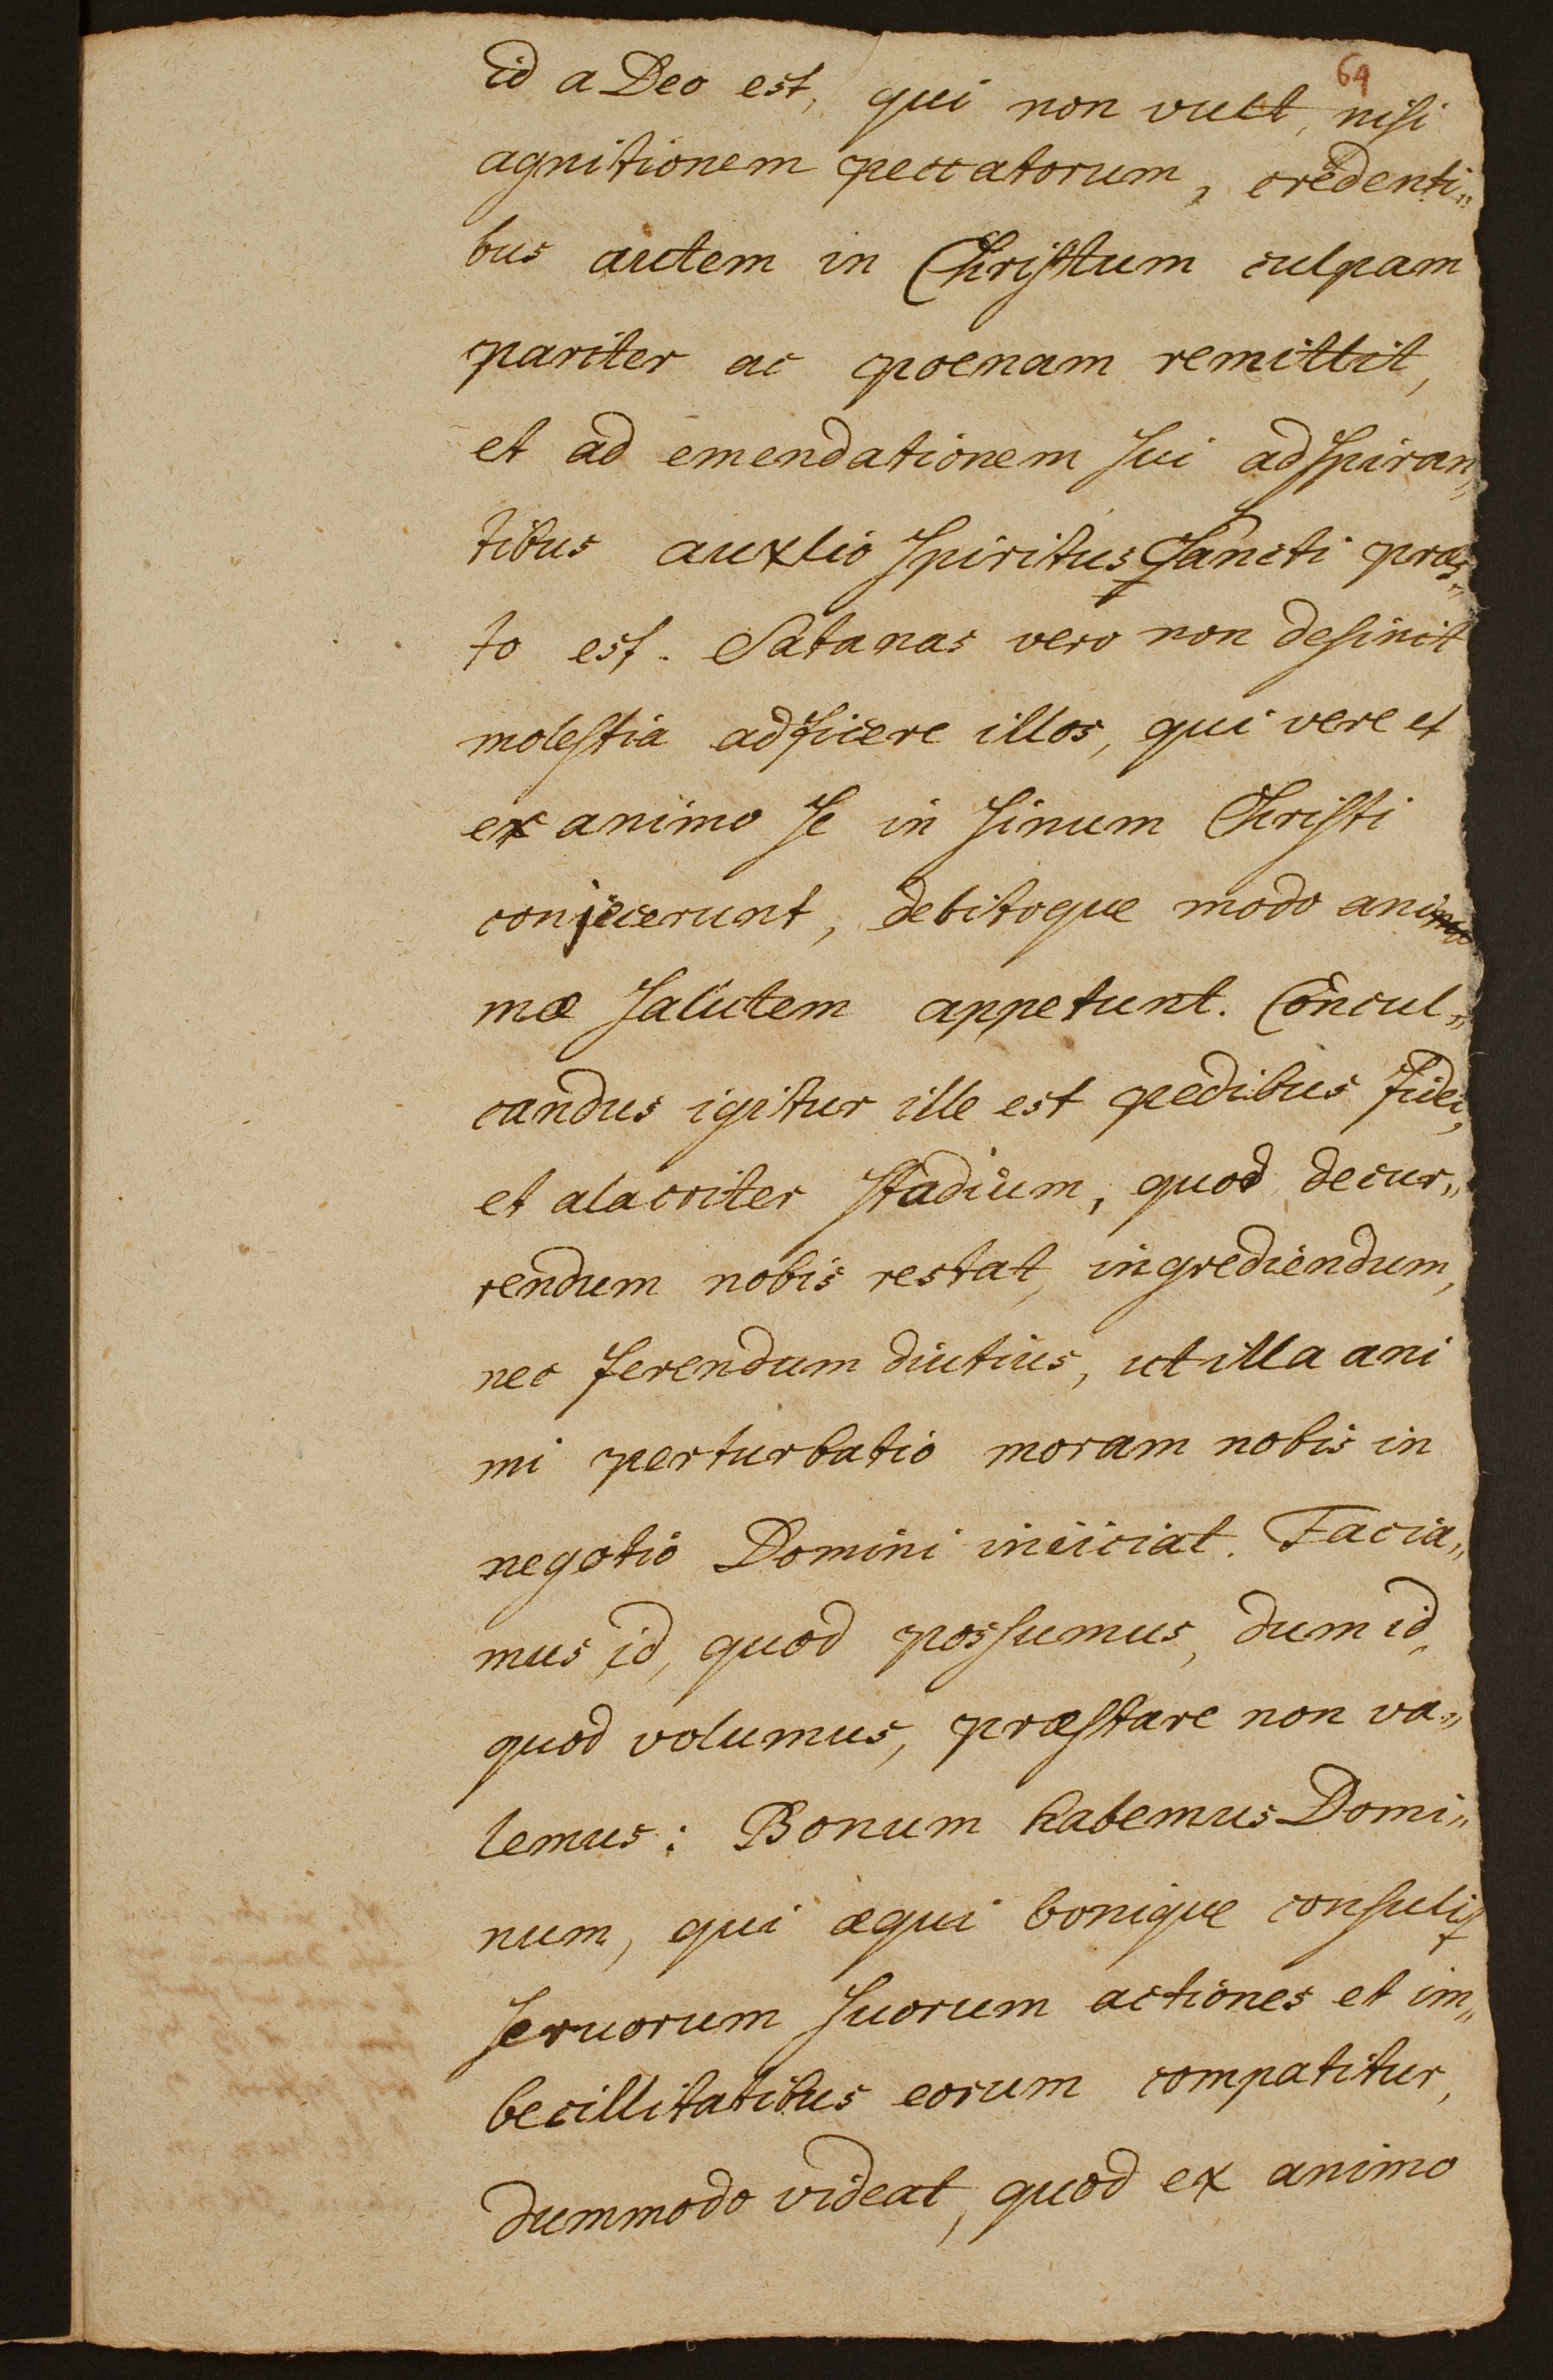 64
id a Deo est, qui non vult, nisi
agnitionem peccatorum, credenti„
bus autem in Christum culpam
pariter ac poenam remittit,
et ad emendationem sui adspiran„
tibus auxlio spiritus Sancti præs„
to est. Satanas vero non desinit
molestia adficere illos, qui vere et
ex animo se in sinum Christi
conjecerunt, debitoque modo ani
mæ salutem appetunt. Concul„
candus igitur ille est pedibus fidei,
et alacriter stadium, quod decur„
rendum nobis restat, ingrediendum,
nec ferendum diutius, ut illa ani
mi perturbatio moram nobis in
negotio Domini iniiciat. Facia„
mus id, quod possumus, dum id,
quod volumus, præstare non va„
lemus: Bonum habemus Domi„
num, qui æqui bonique consulit
servorum suorum actiones et im„
becillitatibus eorum compatitur,
dummodo videat, quod ex animo